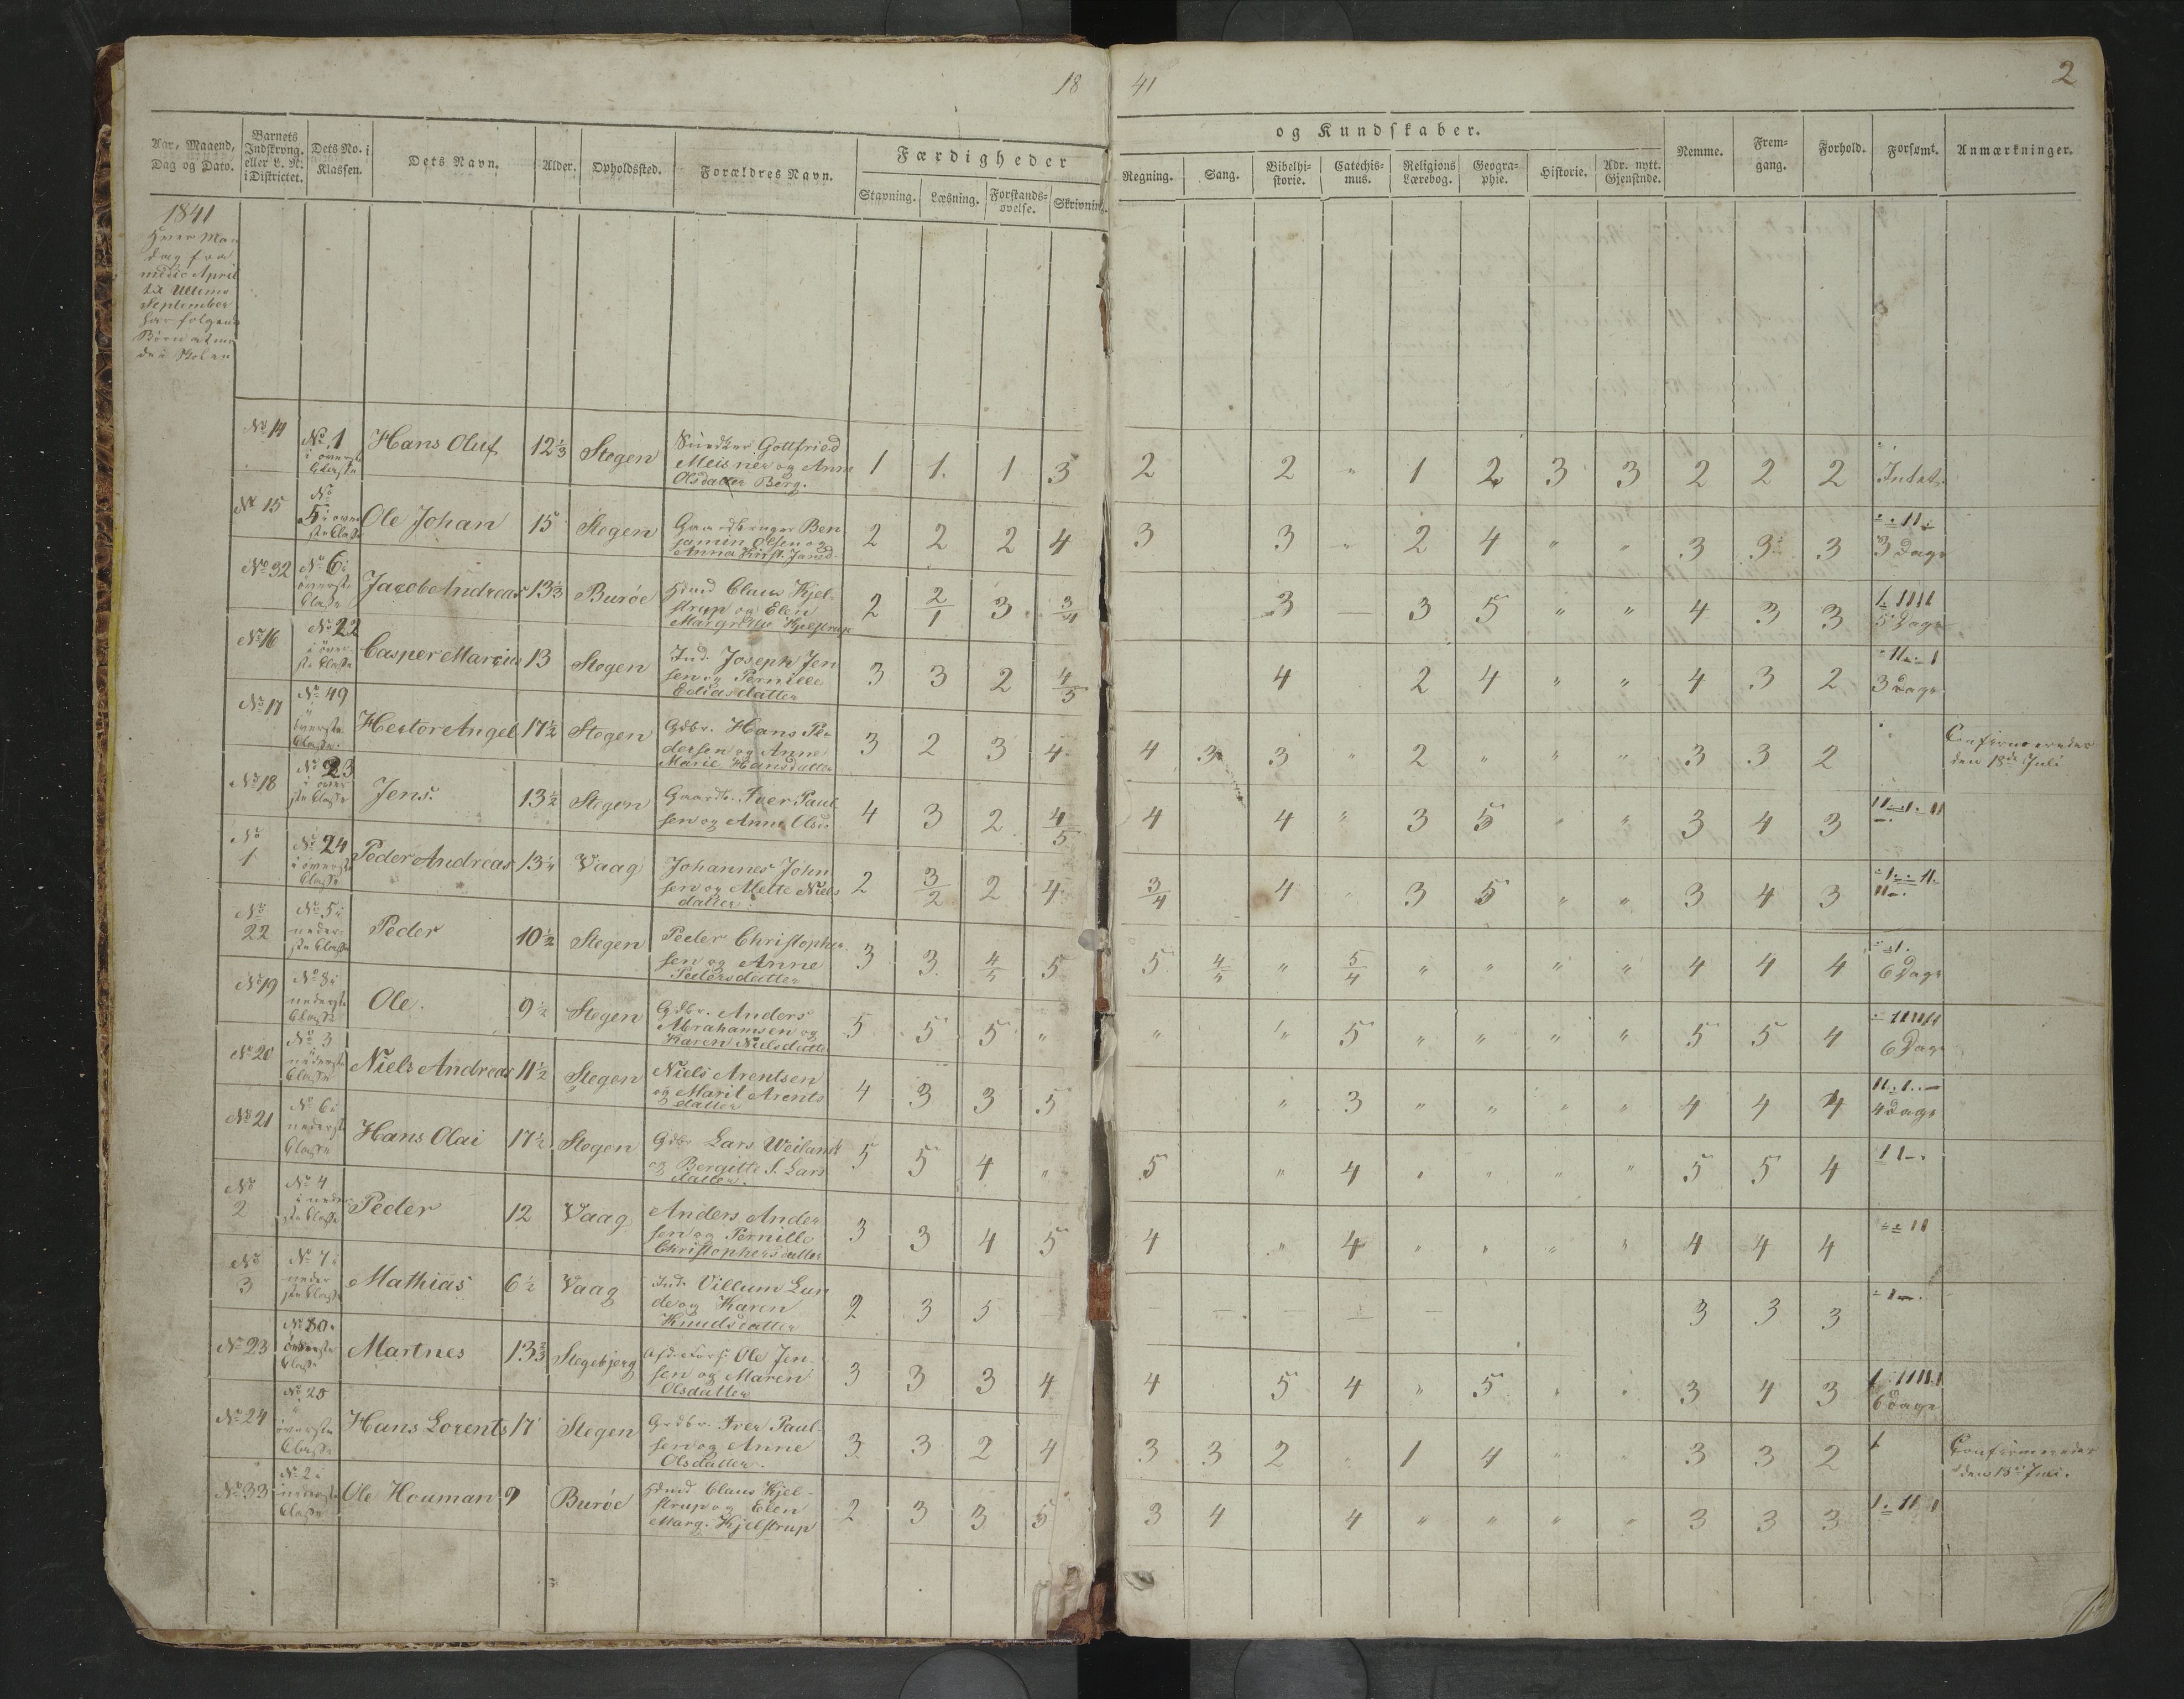 18 41 2
Aar, Maaned, Dag og Dato. Barnets Indskrvng. eller L. N. i Districtet. Dets No. i Klassen. Dets Navn. Alder. Opholdssted. Forældres Navn. Færdigheder og Kundskaber.
Stavning. Læsning. Forstands-øvelse. Skrivning. Regning. Sang. Bibelhi-storie. Catechis-mus. Religions Lærebog. Geogra-phie. Historie. Adr. nytt. Gjenstnde. Nemme. Frem-gang. Forhold. Forsømt. Anmærkninger.
1841
Hver Man
dag fra
medio April
til Ultimo
September
har følgende
Børn at mø
de i Skolen
No 14 No 1 i øverste Classe Hans Oluf 12 1/3 Stegen Gottfried
Meisner og Anne
Olsdatter Berg. 1 1. 1 3 2 2 " 1 2 3 3 2 2 2 Intet.
No 15 No 5 i øverste Classe Ole Johan 15 Stegen Gaardbruger Ben
jamin Olsen og
Anna Kirst. Jansd. 2 2 2 4 3 3 " 2 4 " " 3 3 3 3 Dage
No 32 No 6 i øverste Classe Jacob Andreas 13 1/3 Burøe Hmd Claus Kjel-
strup og Elen
Margrethe Kjelstrup 2 2/1 3 3/4 3 — 3 5 " " 4 3 3 5 Dage
No 16 No 22 i øverste Classe Casper Marcius 13 Stegen Ind. Joseph Jen
sen og Pernille
Ediasdatter 3 3 2 4/5 4 2 4 " " 4 3 2 3 Dage
No 17 No 49 i øverste Classe. Hector Angel 17 1/2 Stegen Gdbr. Hans Pe-
dersen og Anne
Marie Hansdatter 3 2 3 4 4 3 3 " 2 " " " 3 3 2 Confirmeredes
den 18de Juli
No 18 No 23 i øverste Classe Jens. 13 1/2 Stegen Gaardb. Iver Paul
sen og Anne Olsd. 4 3 2 4/5 4 4 " 3 5 " " 3 4 3
No 1 No 24 i øverste Classe Peder Andreas 13 1/4 Vaag Johannes John
sen og Mette Niels
datter. 2 3/2 2 4 3/4 4 3 5 " " 3 4 3
No 22 No 5 i nederste Classe Peder 10 1/2 Stegen Peder Christopher
sen og Anne
Pedersdatter 3 3 4/5 5 5 4/5 " 5/4 " " " " 4 4 4 6 Dage
No 19 No 8 i nederste Classe Ole. 9 1/2 Stegen Gdbr. Anders
Abrahamsen og
Karen Nielsdatter 5 5 5 " " " 5 " " " " 5 5 4 6 Dage
No 20 No 3 i nederste Classe Niels Andreas 11 1/2 Stegen Niels Arentsen
og Marit Arents
datter 4 3 3 5 " 3 " " " " 4 4 4 4 Dage
No 21 No 6 i nederste Classe Hans Olai 17 1/2 Stegen Gdbr Lars Weiland
og Bergitte S. Lars
datter. 5 5 4 " 5 " 4 " " " " 5 5 4
No 2 No 4 i nederste Classe Peder 12 Vaag Anders Ander
sen og Pernille
Christophersdatter 3 3 4 5 4 " 4 " " " " 4 4 4
No 3 No 7 i nederste Classe Mathias 6 1/2 Vaag Ind. Villum Lun
de og Karen
Knudsdatter 2 3 5 — — — — — 3 3 3
No 23 No 30. øverste Classe Martnes 13 2/3 Stegebjerg Ole Jen
sen og Maren
Olsdatter 3 3 3 4 4 5 4 " 5 " " 3 4 3 6 Dage
No 24 No 25 i øverste Classe Hans Lorents 17 Stegen Grdbr. Iver Paul-
sen og Anne
Olsdatter. 3 3 2 4 3 3 2 1 4 " " 3 3 2 Confirmeredes
den 18de Juli.
No 33 No 2 i nederste Classe Ole Houman 9 Burøe Hmd Claus Kjel-
strup og Elen
Marg. Kjelstrup 2 3 3 5 3 4 4 " " " " 3 3 3